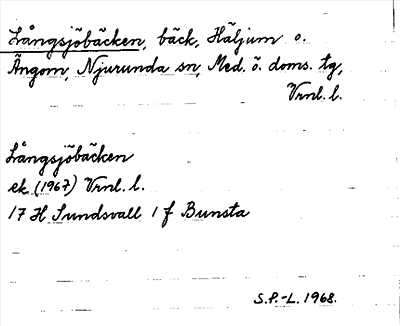 Långsjöbäcken, bäck, Häljum o.
Ängom, Njurunda sn, Med. ö. doms. tg,
Vrnl. l.
Långsjöbäcken
ek (1967) Vrnl. l.
17 H Sundsvall 1 f Bunsta
S.P.-L. 1968.